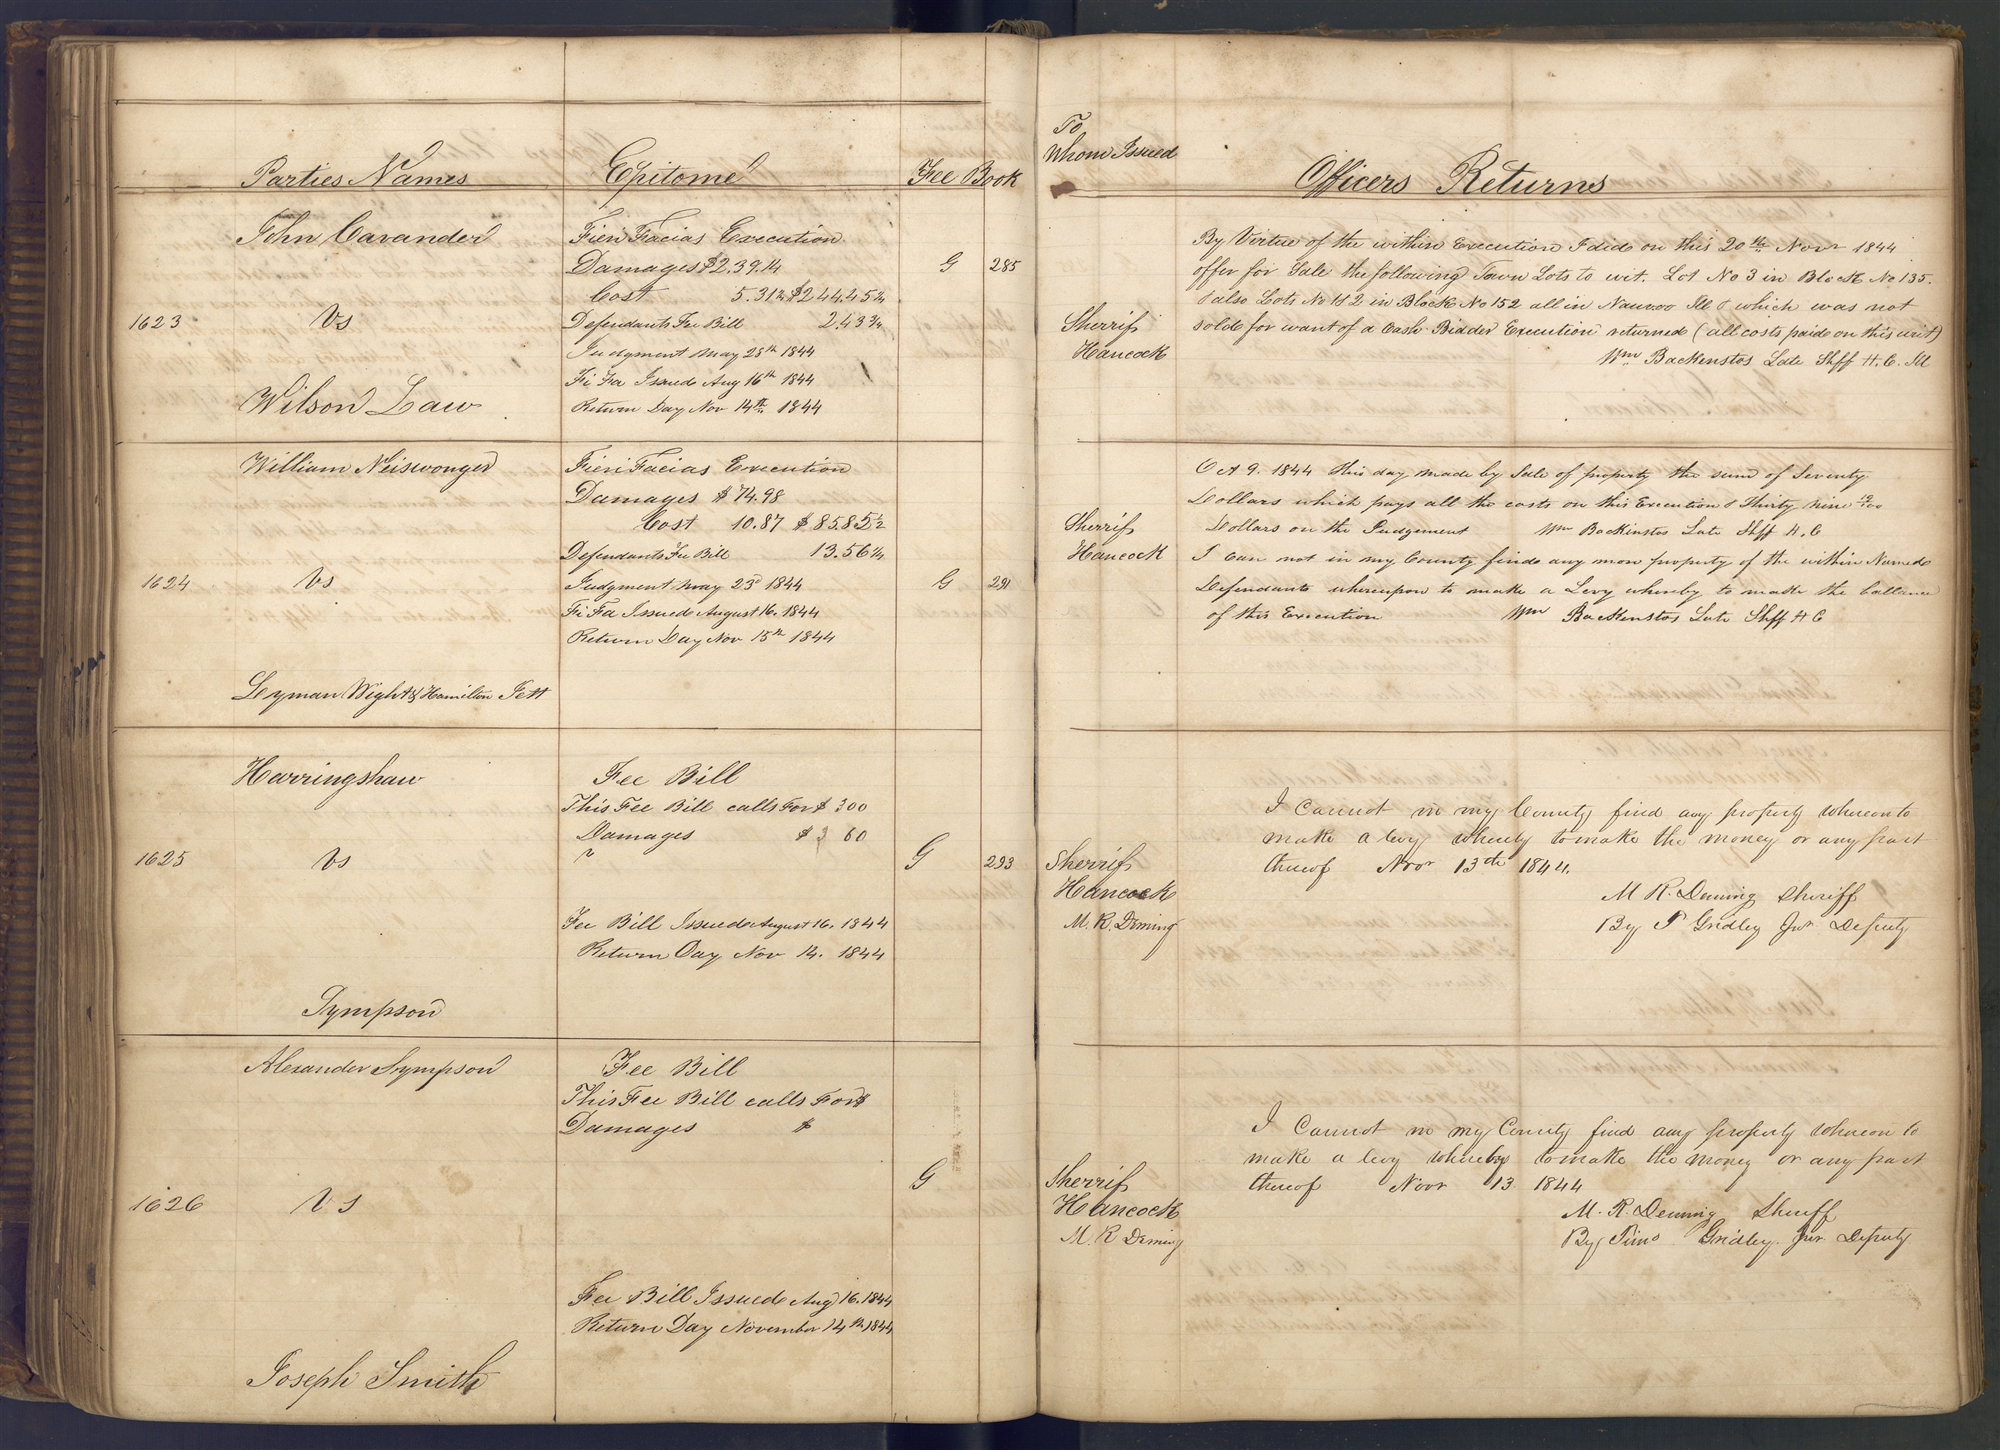 Parties Names
Epitome
Fee Book
1623
John Cavander
Vs
Wilson Law
Fieri Facias Execution
Damages $2,39.14
Cost 5.31¼ $244.45¼
Defendants Fee Bill 2.43¾
Judgment May 28th 1844
Fi Fa Issued Aug 16th 1844
Return Day Nov 14th 1844
G 285
1624
William Neiswonger
Vs
Leyman Wight & Hamilton Jett
Fieri Facias Execution
Damages $74.98
Cost 10.87 $85.85½
Defendants Fee Bill 13.56¼
Judgment May 23d 1844
Fi Fa Issued August 16. 1844
Return Day Nov 15th 1844
G 291
1625
Harringshaw
Vs
Sympson
Fee Bill
This Fee Bill calls For $ 300
Damages $ 3 60
Fee Bill Issued August 16. 1844
Return Day Nov 14. 1844
G 293
1626
Alexander Sympson
V S
Joseph Smith
Fee Bill
This Fee Bill calls For $
Damages $
Fee Bill Issued Aug 16. 1844
Return Day November 14th 1844
G
To
Whom Issued
Officers Returns
Sherrif
Hancock
By Virtue of the within Execution I did on this 20th Novr 1844
offer for Sale the following Town Lots to wit. Lot No 3 in Block No 135.
& also Lots No 1&2 in Block No 152 all in Nauvoo Ill & which was not
sold for want of a Cash Bidder Execution returned (all costs paid on this writ)
Wm Backenstos Late Shff H. C. Ill
Sherrif
Hancock
Oct 9. 1844 this day made by Sale of property the sum of Seventy
Dollars which pays all the costs on this Execution & Thirty nine 19/100
Dollars on the Judgement Wm Backinstos Late Shff H. C
I can not in my County find any more property of the within Named
Defendants whereupon to make a Levy whereby to make the ballance
of this Execution Wm Backenstos Late Shff H C
Sherrif
Hancock
M. R. Deming
I cannot in my County find any property whereon to
make a levy whereby to make the money or any part
thereof Novr 13th 1844.
M R. Deming Sheriff
By T Gridley Jnr Deputy
Sherrif
Hancock
M. R Deming
I Cannot in my County find any property whereon to
make a levy whereby to make the money or any part
thereof Novr 13 1844
M. R. Deming Sheriff
By Timo Gridley Jnr Deputy